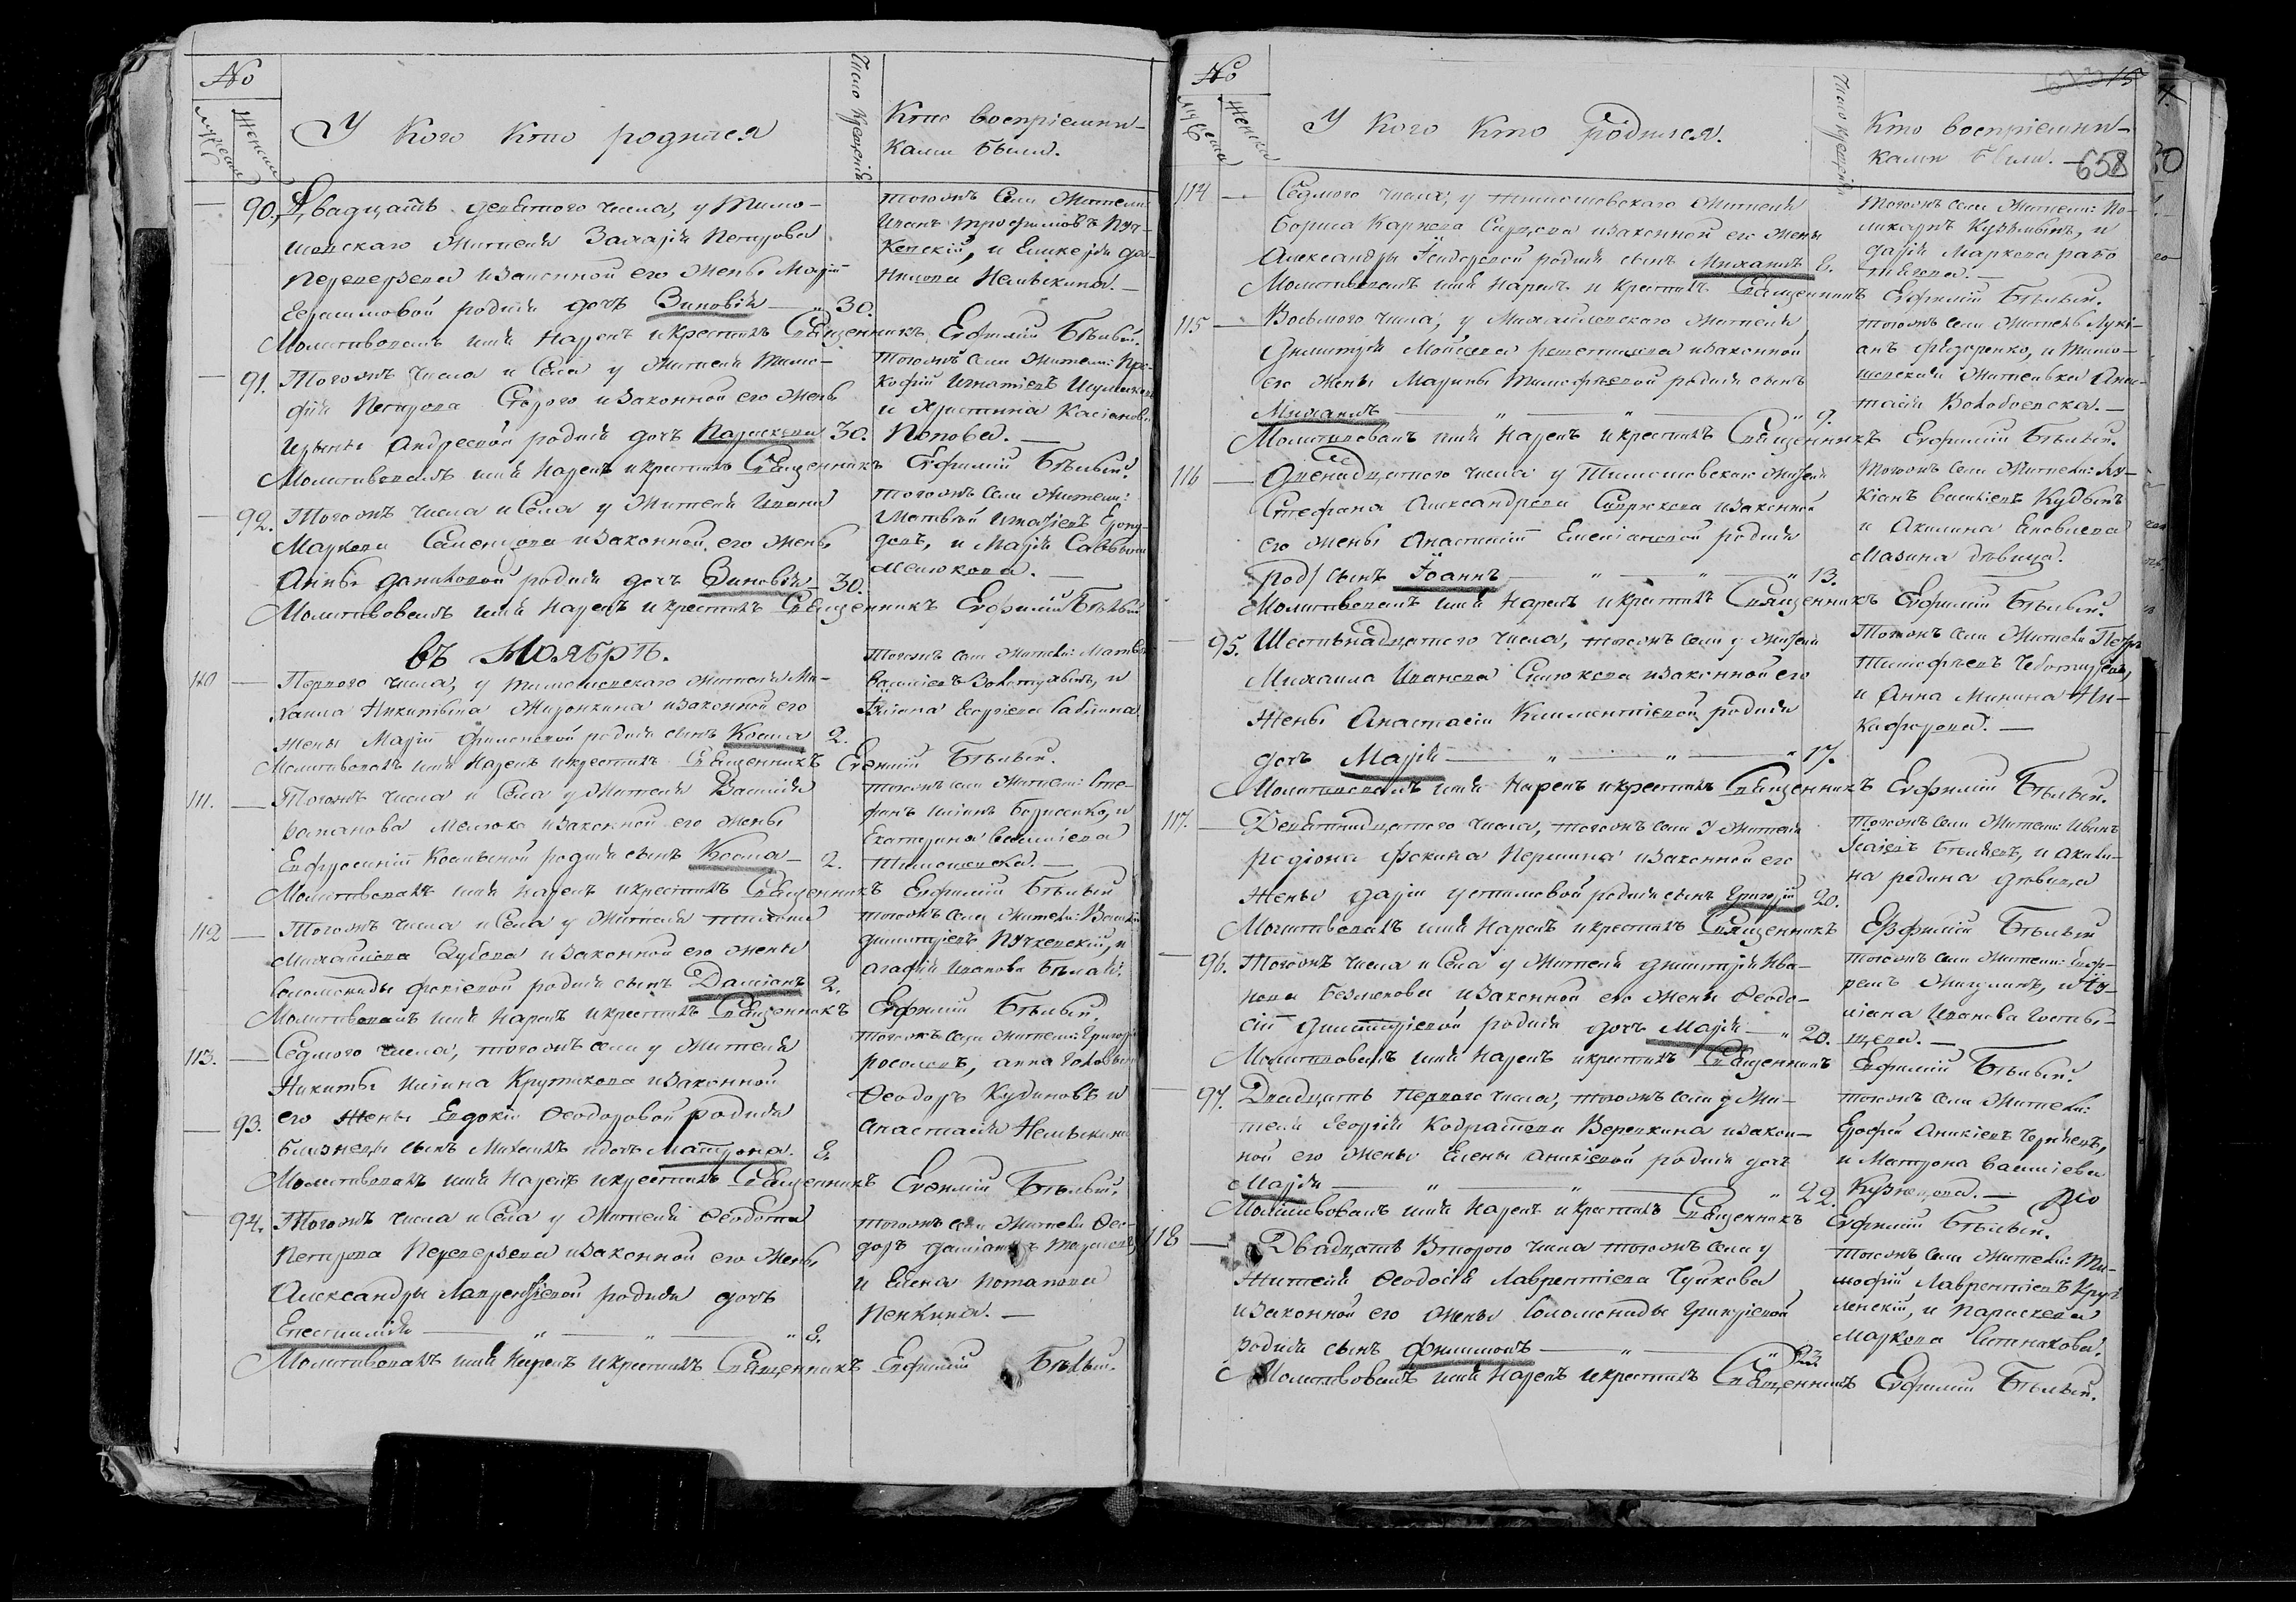 №
Мужеска
Женска
У кого кто родился
Число крещенія
Кто воспріемни-
ками были.
90. Двадцать девятого числа, у Тимо-
шевскаго жителя Захарія Петрова
Переверзева и законной его жены Маріи
Герасимовой родися дочь Зиновія 30.
Молитвовалъ имя нарекъ и крестилъ Священникъ Евфимій Бѣлый.
тогожъ села жители
Иванъ Трофимовъ Пуч-
кевскій, и Гликерія Да-
нилова
91. Тогожъ числа и села у жителя Тимо-
фія Петрова Старого и законной его жены
Ирины Андреевой родися дочь Параскева 30.
Молитвовалъ имя нарекъ и крестилъ Священникъ Евфимій Бѣлый.
тогожъ села жители: Про-
кофій Игнатіевъ
и Христина Касіанов.
Попова. —
92. Тогожъ числа и села у жителя Ивана
Маркова Саменцова и законной его жены
Анны Даниловой родися дочь Зиновія 30.
Молитвовалъ имя нарекъ и крестилъ Священникъ Евфимій Бѣлый
тогожъ села жители:
Матвѣй Игнатіевъ
и Марія Саввина
въ Ноябрѣ.
110 — Первого числа, у тимошевскаго жителя Ми-
хаила Никитина Жиронкина и законной его
жены Маріи Филиповой родися сынъ Косма 2.
Молитвовалъ имя нарекъ и крестилъ Священникъ Евфимій Бѣлый.
тогожъ села жители: Матвѣй
Василіевъ Золотухинъ, и
Георгіева
111. — Тогожъ числа и села у жителя Василія
Романова Мелюха и законной его жены
Евфросиніи Космыной родися сынъ Косма — 2.
Молитвовалъ имя нарекъ и крестилъ Священникъ Евфимій Бѣлый
тогожъ села жители: Сте-
фанъ Борисенко, и
Екатерина Василіева
112 — Тогожъ числа и села у жителя
Михайлова Зубова и законной его жены
Соломониды Фокіевой родися сынъ Даміанъ 2.
Молитвовалъ имя нарекъ и крестилъ Священникъ Евфимій Бѣлый.
тогожъ села жители: Василій
Димитріевъ Пучкевскій, и
Агафія Иванова
113. — Седмого числа, тогожъ села у жителя
Никиты Крутикова и законной
93. его жены Евдокіи Феодоровой родися
близнецы сынъ Михаилъ и дочь Матрона. 8.
Молитвовалъ имя нарекъ и крестилъ Священникъ Евфимій Бѣлый.
тогожъ села жители: Григорій
Росоловъ, Анна
Феодоръ Кудиновъ и
Анастасія
94. Тогожъ числа и села у жителя Феодота
Петрова Переверзева и законной его жены
Александры Лаврентіевой родися дочь
— " — " — " 8.
Молитвовалъ имя нарекъ и крестилъ Священникъ Евфимій Бѣлый.
тогожъ села жители Фео-
доръ
и Елена Потапова
Пенкина. —
№
Мужеска
Женска
У кого кто родился.
Число крещенія
Кто воспріемни-
ками были. — 658
114 — Седмого числа, у тимошевского жителя
Бориса Карпова и законной его жены
Александры родися сынъ Михаилъ 8.
Молитвовалъ имя нарекъ и крестилъ Священникъ Евфимій Бѣлый.
тогожъ села жители: По-
ликарпъ Кузьминъ, и
Дарія Маркова
115 — Восьмого числа, у Михайловского жителя
Димитрія Мойсеева Решетникова и законной
его жены Марины Тимофѣевой родися сынъ
Михаилъ — " — " — " 9.
Молитвовалъ имя нарекъ и крестилъ Священникъ Евфимій Бѣлый.
тогожъ села житель Луки-
анъ Федоренко, и Тимо-
шевская жителька Ана-
тасія
116 — числа у Тимошевскаго жителя
Стефана Александрова и законной
его жены Анастасіи Емеліановой родися
род/ сынъ Іоаннъ — " — " — " 13.
Молитвовалъ имя нарекъ и крестилъ Священникъ Евфимій Бѣлый.
тогожъ села жители: Лу-
кіанъ Василіевъ
и Акилина Яковлева
Мазина дѣвица.
95. Шестьнадцатого числа, тогожъ села у жителя
Михаила Иванова и законной его
жены Анастасіи Климентіевой родися
дочь Марія — " — " — " 17.
Молитвовалъ имя нарекъ и крестилъ Священникъ Евфимій Бѣлый.
тогожъ села жители Петръ
Тимофѣевъ
и Анна Минина Ни-
кифорова. —
117. — Девятнадцатого числа, тогожъ села у жителя
Родіона Фокина Першина и законной его
жены Даріи Устимовой родися сынъ Григорій 20.
Молитвовалъ имя нарекъ и крестилъ Священникъ Евфимій Бѣлый
тогожъ села жители: Иванъ
и Акили-
на Редина дѣвица
96. Тогожъ числа и села у жителя Димитрія Ива-
нова Безменова и законной его жены Феодо-
сіи Димитріевой родися дочь Марія — " 20.
Молитвовалъ имя нарекъ и крестилъ Священникъ Евфимій Бѣлый.
тогожъ села жители: Евф-
ремъ и Іу-
ліана Иванова Гостьи-
щева. —
97. Двадцать первого числа, тогожъ села у жи-
теля Георгія Кодратова Веревкина и закон-
ной его жены Елены Аникіевой родися дочь
Марія — " — " — " 22.
Молитвовалъ имя нарекъ и крестилъ Священникъ Евфимій Бѣлый.
тогожъ села жители:
Ерофей Аникіевъ
и Матрона Василіева
Кузнецова. —
118 — Двадцать второго числа тогожъ села у
жителя Феодосія Лаврентіева Чуйкова
и законной его жены Соломониды Григоріевой
родися сынъ Филимонъ — " — " 23.
Молитвовалъ имя нарекъ и крестилъ Священникъ Евфимій Бѣлый.
тогожъ села жители: Ти-
мофій Лаврентіевъ
и Параскева
Маркова Ситникова.